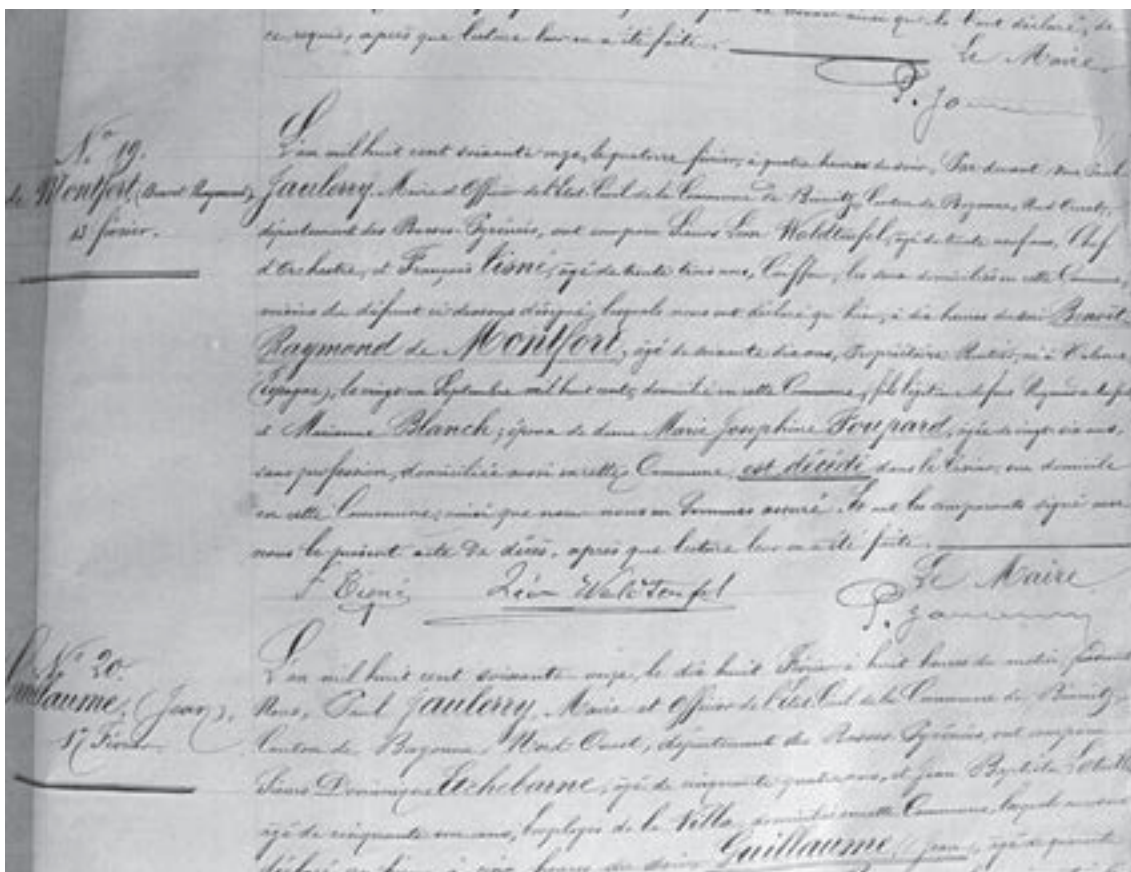 ainsi que le Vont déclaré, de
ce requis, après que lecture leur en a été faite.
Le Maire
P. Jau
N.o 19.
de Montfort (Benoit Raymond)
13 février.
L'an mil huit cent soixante onze, le quatorze février, à quatre heures du soir, Par devant nous Paul
Jaulerry, Maire et Officier de l'Etat Civil de la Commune de Biarritz, Canton de Bayonne, Nord Ouest,
département des Basses-Pyrénées, ont comparu Sieurs Léon Waldteufel, âgé de trente neuf ans, Chef
d'Orchestre, et François Tisné, âgé de trente trois ans, Coiffeur, les deux domiciliés en cette Commune,
voisins du défunt ci-dessous désigné, lesquels nous ont déclaré qu'hier, à dix heures du soir Benoît-
Raymond de Montfort, âgé de soixante dix ans, Propriétaire Rentier, né à
(Espagne), le vingt un Septembre mil huit cent, domicilié en cette Commune, fils légitime de feus Raymond
et Marianne Blanch; époux de dame Marie Josephine Foupard, âgée de vingt six ans,
sans profession, domiciliée aussi en cette Commune, est décédé dans le domicile
en cette Commune, ainsi que nous nous en sommes assuré. Et ont les comparants signé avec
nous le présent acte de décès, après que lecture leur en a été faite.
F Tisné Léon Waldteufel
Le Maire
P. Jau
N.o 20.
Guillaume, (Jean),
17 Février
L'an mil huit cent soixante onze, le dix huit Février à huit heures du matin, pardevant
Nous, Paul Jaulerry, Maire et Officier de l'Etat Civil de la Commune de Biarritz,
Canton de Bayonne, Nord-Ouest, département des Basses-Pyrénées, ont comparu
Sieurs Dominique Etchebarne, âgé de cinquante quatre ans, et Jean Baptiste
âgé de cinquante ans, Employés de la Ville, domiciliés en cette Commune, lesquels nous ont
déclaré qu'hier à heures du soir Guillaume, (Jean), âgé de quarante